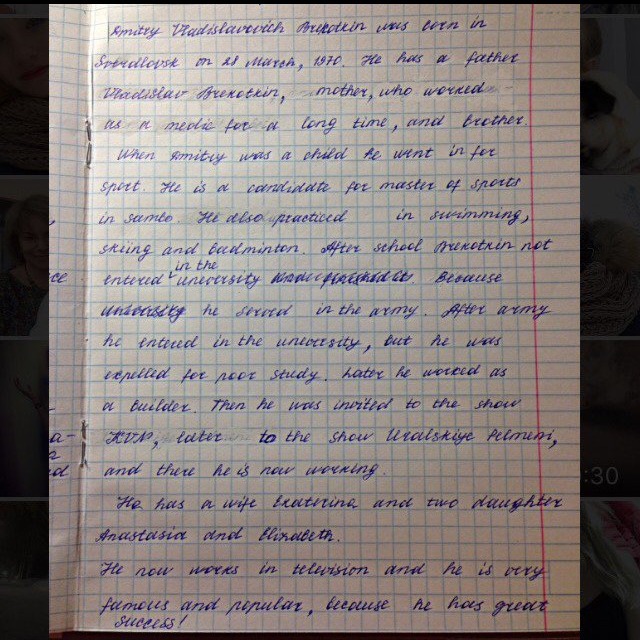 Dmitry Vladislavovich Brekotkin was born in
Sverdlovsk on 28 March, 1970. He has a father
Vladislav Brekotkin, mother, who worked
as a medic for a long time, and brother.
When Dmitry was a child he went in for
sport. He is a candidate for master of sports
in sambo. He also practiced in swimming,
skiing and badminton. After school Brekotkin not
in the
entered university. Because
university he served in the army. After army
he entered in the university, but he was
expelled for poor study. Later he worked as
a builder. Then he was invited to the show
KVN, later to the show Uralskiye Pelmeni,
and there he is now working.
He has a wife Ekaterina and two daughter
Anastasia and Elizabeth.
He now works in television and he is very
famous and popular, because he has great
success!
:30